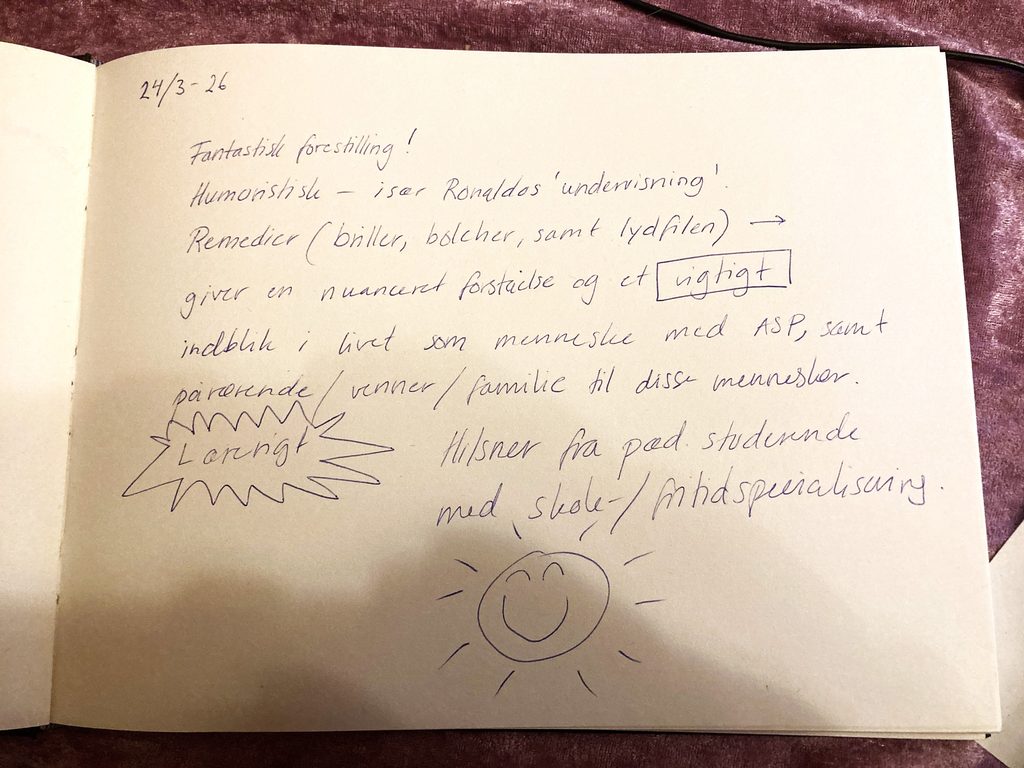 24/3-26
Fantastisk forestilling!
Humoristisk – især Ronaldos 'undervisning'.
Remedier (briller, bolcher, samt lydfilen) →
giver en nuanceret forståelse og et vigtigt
indblik i livet som menneske med ASP, samt
pårørende/venner/familie til disse mennesker.
Lærerigt
Hilsner fra pæd. studerende
med skole-/fritidspecialisering.